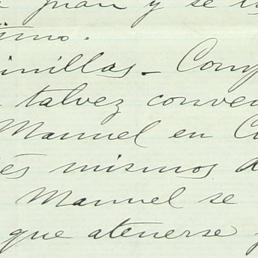 Juan y se
imo.
inillas - Comp
talvez conven
Manuel en C
és mismos d
Manuel se
que atenerse